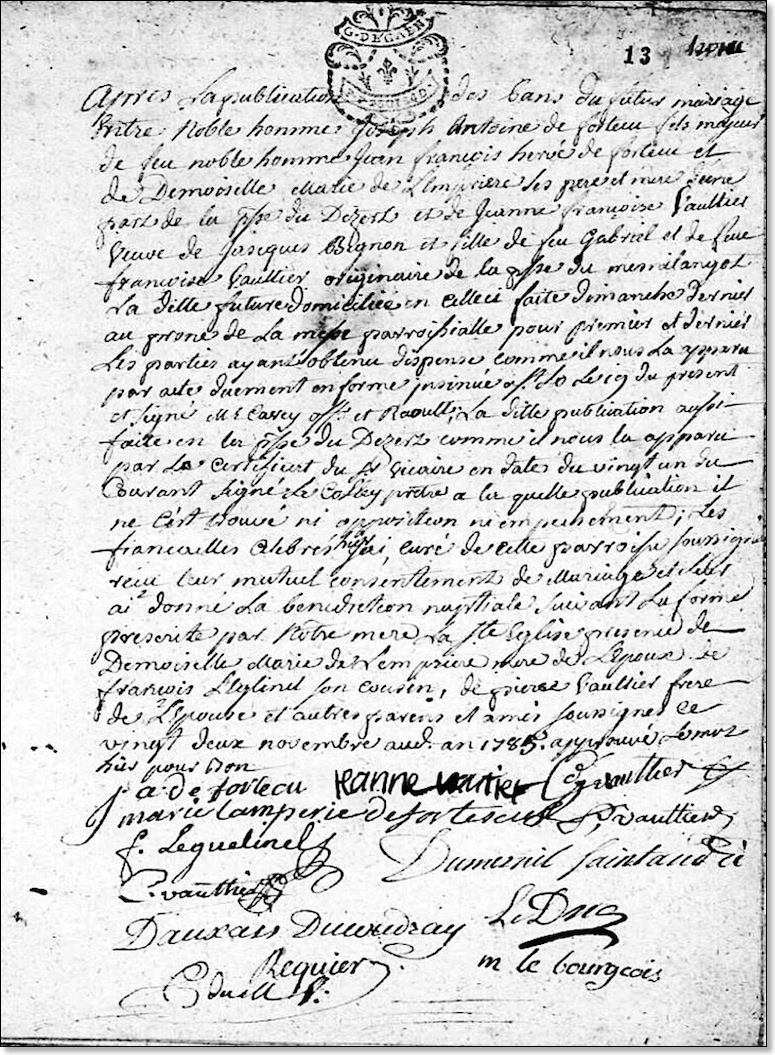 G. DE CAEN
13
Apres La publication des bans du futur mariage
Entre Noble homme Joseph Antoine de forteau fils majeur
de feu noble homme Jean françois hervé de forteau et
de Demoiselle Marie de Lempriere ses pere et mere d'une
part de la psse du Dezert et de Jeanne françoise Vaultier
Veuve de Jacques Bignon et fille de feu Gabriel et de feue
francoise Vaultier originaire de la psse du mesnilangot
La ditte future domiciliée en celle ci faite dimanche dernier
au prone de La messe parroissialle pour premier et dernier
Les parties ayant obtenu dispense comme il nous La apparu
par acte duement en forme insinué a St Lo Le 19 du present
et signé et Raoult; La ditte publication aussi
faite en la psse du Dezert comme il nous la apparu
par Le certificat du Sr Vicaire en date du vingt un du
Courant signé Le pretre a la quelle publication il
ne s'est trouvé ni opposition ni empeschement; Les
fiancailles celebrés hier j'ai, curé de cette parroisse soussigné
recu leur mutuel consentement de Mariage et leur
ai donné La benediction nuptiale suivant La forme
prescrite par Notre mere La Ste Eglise presence de
Demoiselle Marie de Lempriere mere de L'Epoux de
françois son cousin, de pierre Vaultier frere
de L'Epouse et autres parens et amis soussignés ce
vingt deux novembre aud. an 1785. approuvé Le mot
hier pour bon
j a de forteau jeanne vautier vaulthier
marie lamperie de fortescu vaulthier
f. Leguelinel Dumesnil Saintandré
vaulthier
Dauxais Ducoudray Le Duc
Requier m le bourgeois